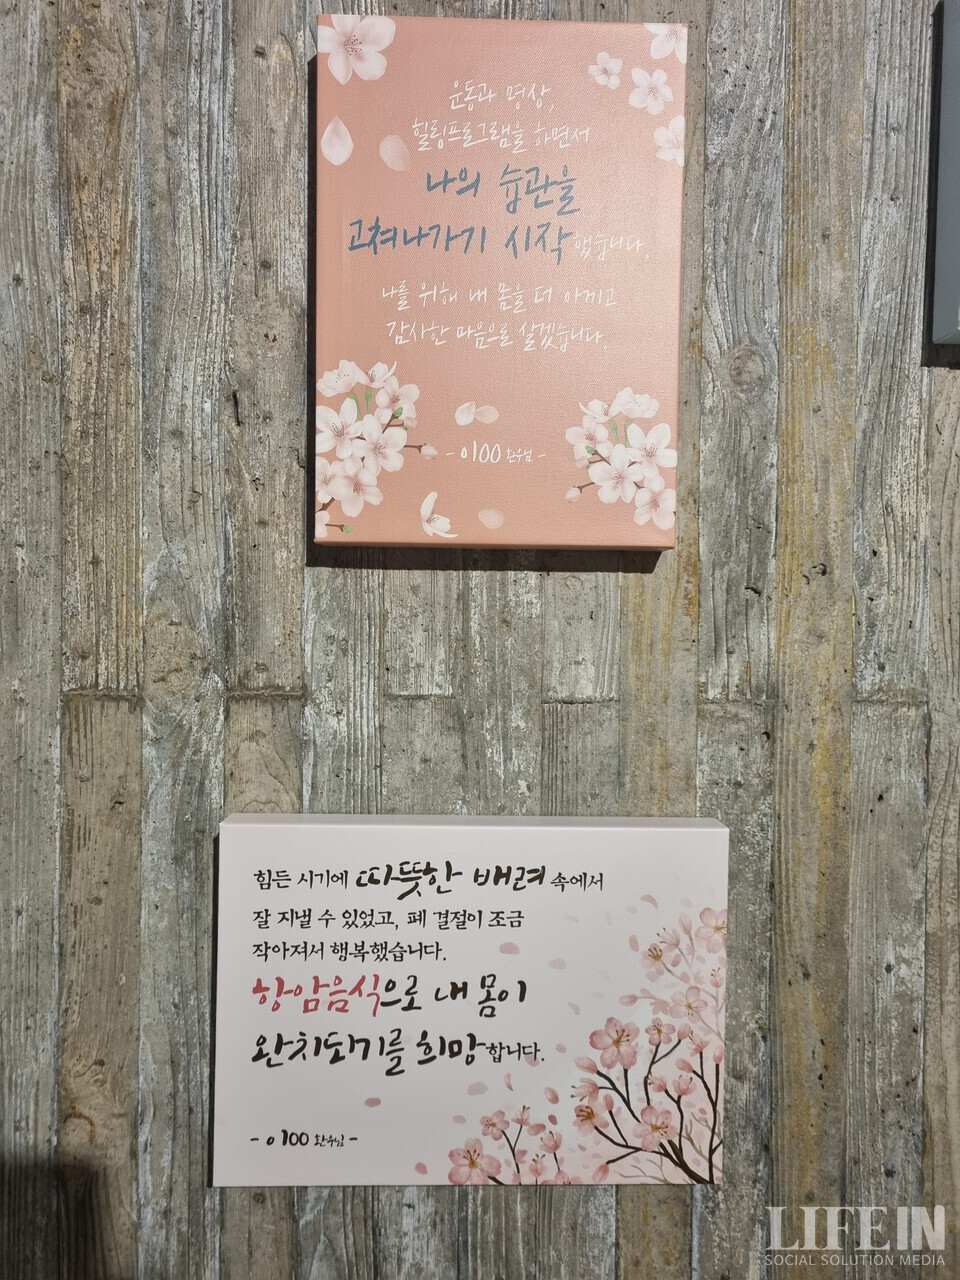 운동과 명상,
힐링프로그램을 하면서
나의 습관을
고쳐나가기 시작했습니다.
나를 위해 내 몸을 더 아끼고
감사한 마음으로 살겠습니다.
- 이00 환우님 -
힘든 시기에 따뜻한 배려 속에서
잘 지낼 수 있었고, 폐 결절이 조금
작아져서 행복했습니다.
항암음식으로 내 몸이
완치되기를 희망합니다.
- 이00 환우님 -
LIFEIN
SOCIAL SOLUTION MEDIA